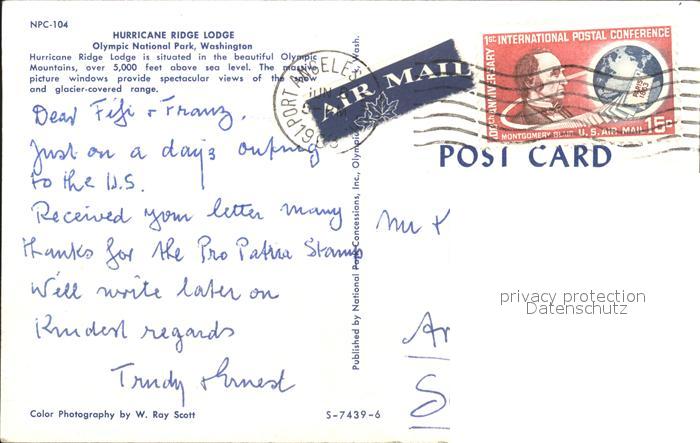 NPC-104
HURRICANE RIDGE LODGE
Olympic National Park, Washington
Hurricane Ridge Lodge is situated in the beautiful Olympic
Mountains, over 5,000 feet above sea level. The massive
picture windows provide spectacular views of the snow
and glacier-covered range.
Dear Fifi + Franz,
Just on a days outing
to the U.S.
Received your letter many
thanks for the Pro Patria Stamps
We'll write later on
Kindest regards
Trudy + Ernest
Color Photography by W. Ray Scott
S-7439-6
Published by National Park Concessions, Inc., Olympic Wash.
PORT ANGELES
JUN
AM
AIR MAIL
100th ANNIVERSARY
1st INTERNATIONAL POSTAL CONFERENCE
PARIS
1863
MONTGOMERY BLAIR U.S. AIR MAIL 15c
POST CARD
Mr
privacy protection
Datenschutz